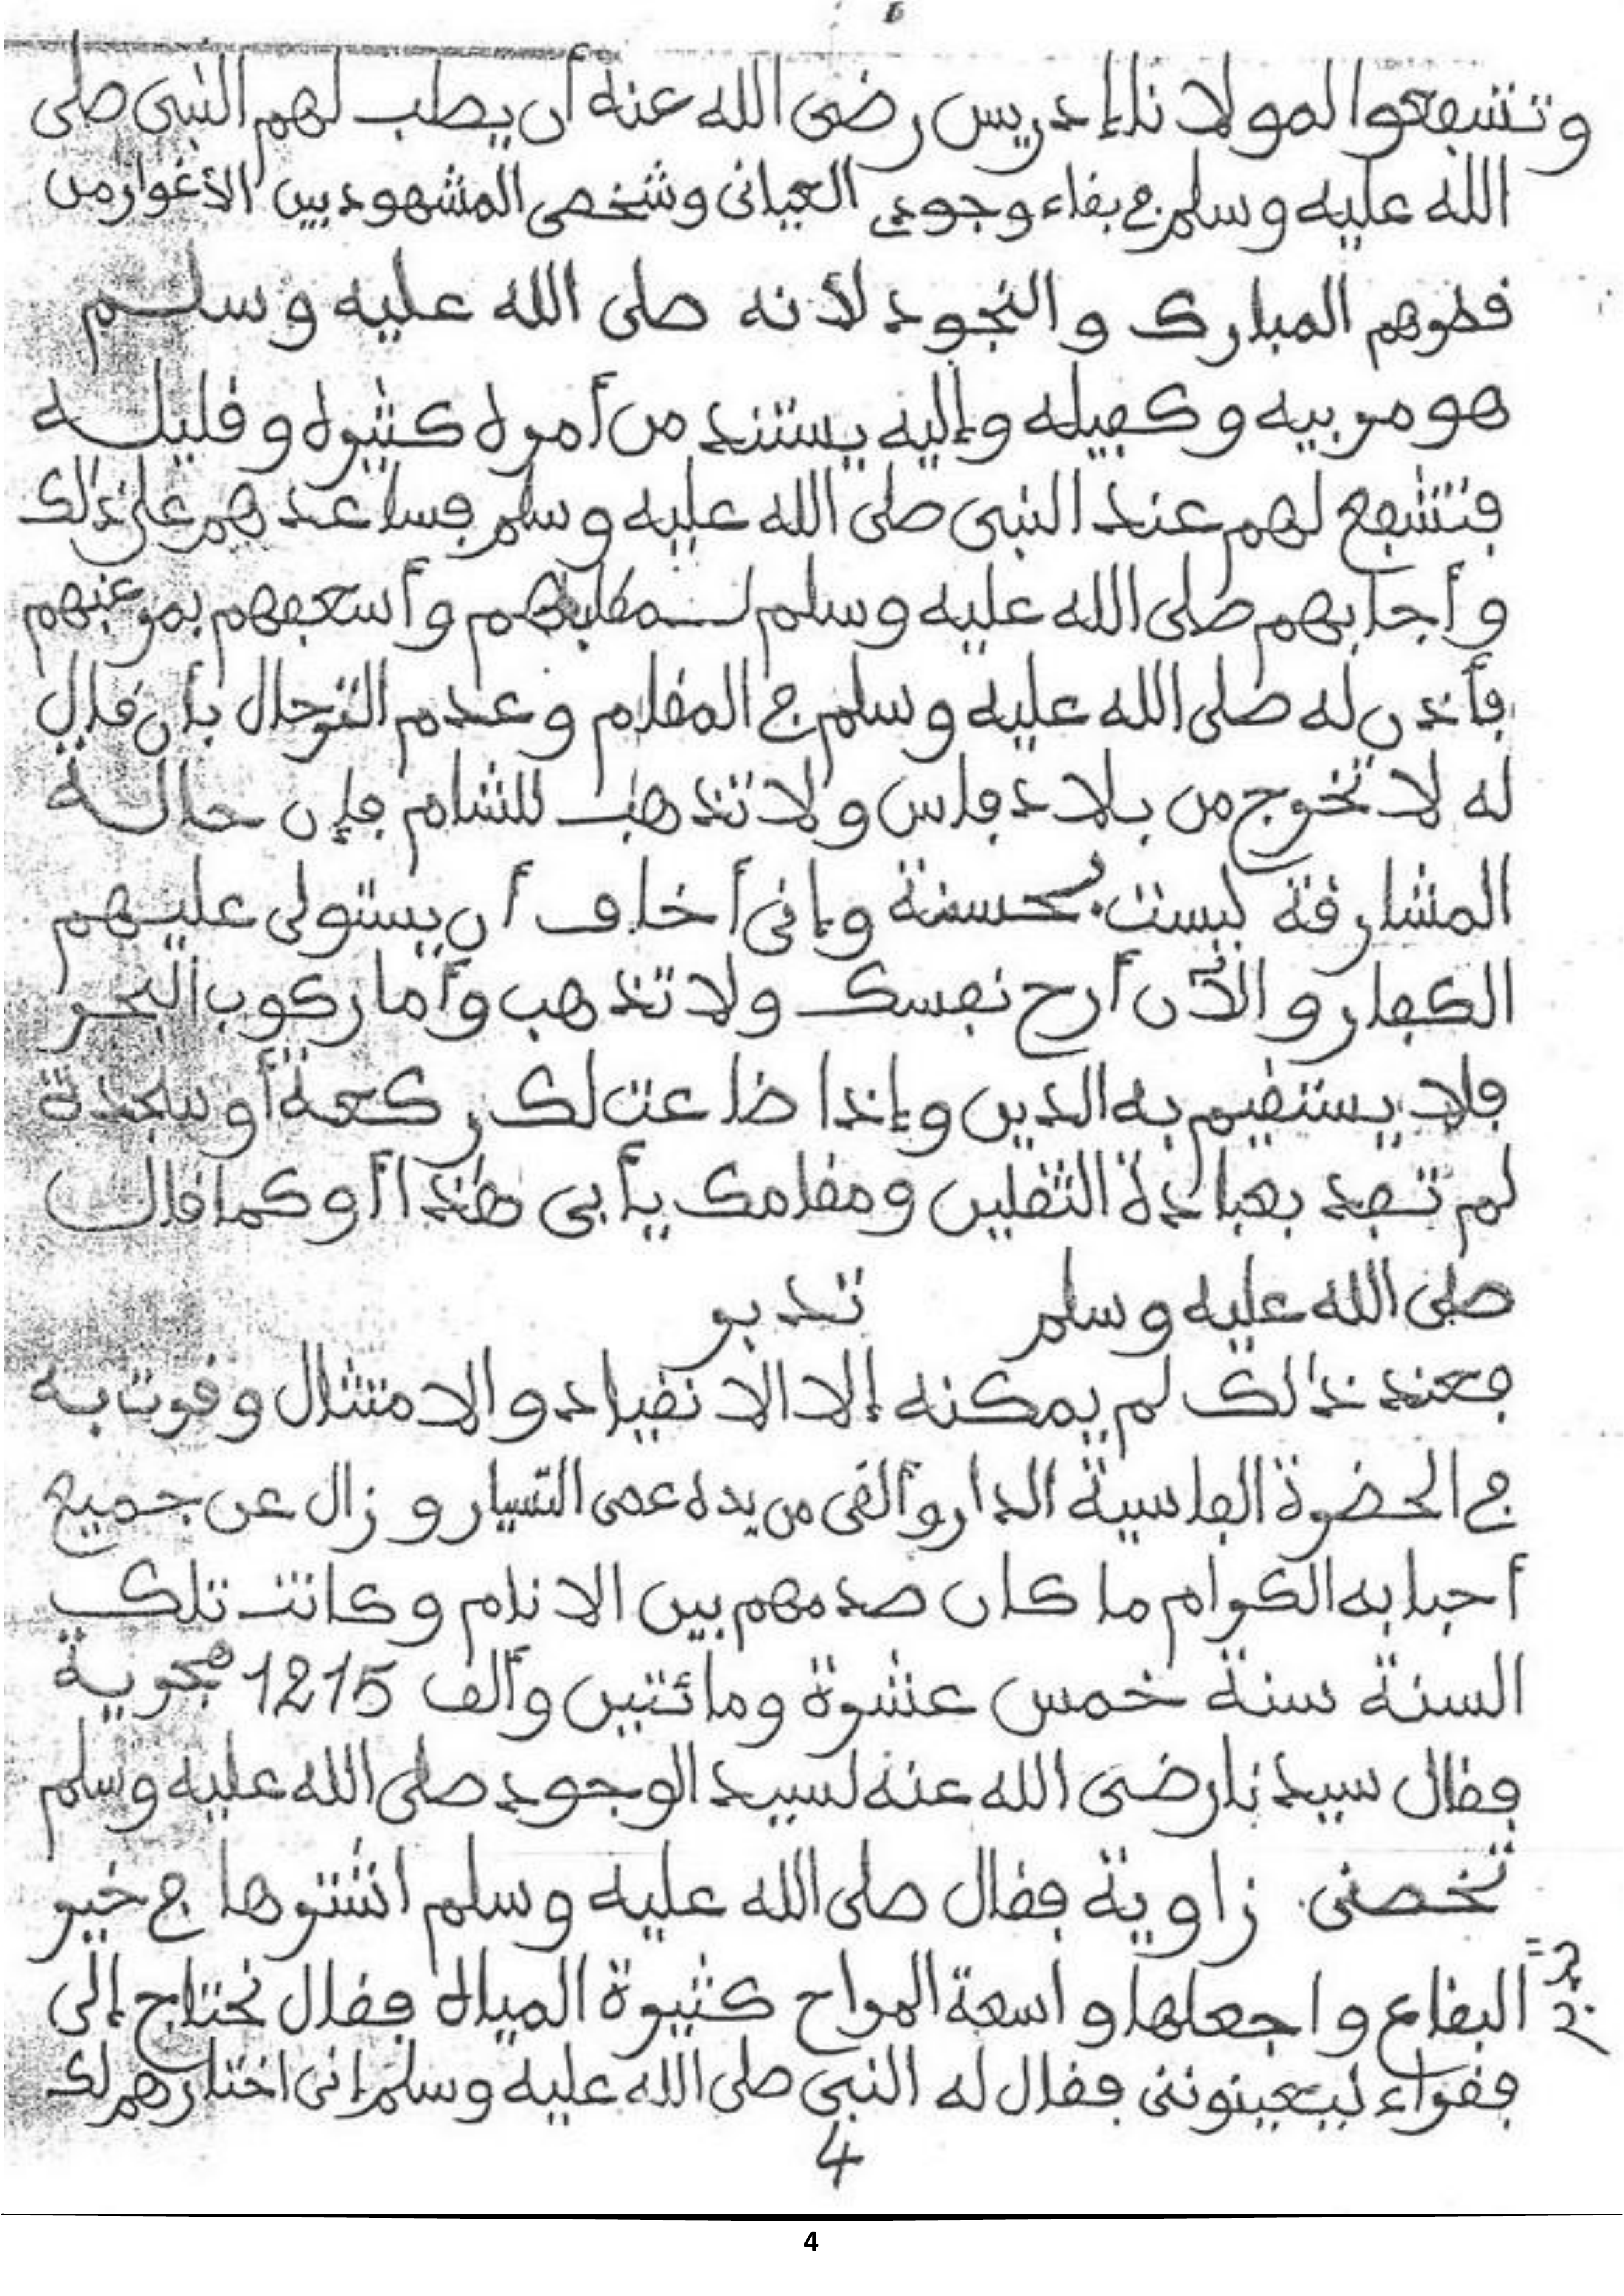 وتشفعوا لمولانا إدريس رضي الله عنه أن يطب لهم النبي صلى
الله عليه وسلم في بقاء وجودي العياني وشخصي المشهود بين الأغوار من
قطرهم المبارك والنجود لأنه صلى الله عليه وسلم
هو مربيه وكفيله وإليه يستند من أمره كثيره وقليله
فتشفع لهم عند النبي صلى الله عليه وسلم فساعدهم على ذلك
وأجابهم صلى الله عليه وسلم لمطلبهم وأسعفهم بمرغبهم
فأذن له صلى الله عليه وسلم في المقام وعدم الترحال بأن قال
له لا تخرج من بلاد فاس ولا تذهب للشام فإن حالة
المشارقة ليست بحسنة وإني أخاف أن يستولى عليهم
الكفار والآن أرح نفسك ولا تذهب وأما ركوب البحر
فلا يستقيم به الدين وإذا ضاعت لك ركعة أو سجدة
لم تفد بعبادة الثقلين ومقامك يأبى هذا أو كما قال
صلى الله عليه وسلم تدبر
فعند ذلك لم يمكنه إلا الانقياد والامتثال وقرت به
في الحضرة الفاسية الدار وألقى من يده عصى التسيار وزال عن جميع
أحبابه الكرام ما كان صدمهم بين الانام وكانت تلك
السنة سنة خمس عشرة ومائتين وألف 1215 هجرية
فقال سيدنا رضي الله عنه لسيد الوجود صلى الله عليه وسلم
تخصني زاوية فقال صلى الله عليه وسلم اشتروها في خير
البقاع واجعلها واسعة المراح كثيرة المياه فقال نحتاج إلى
فقراء ليعينونني فقال له النبي صلى الله عليه وسلم إني اختارهم لك
4
4